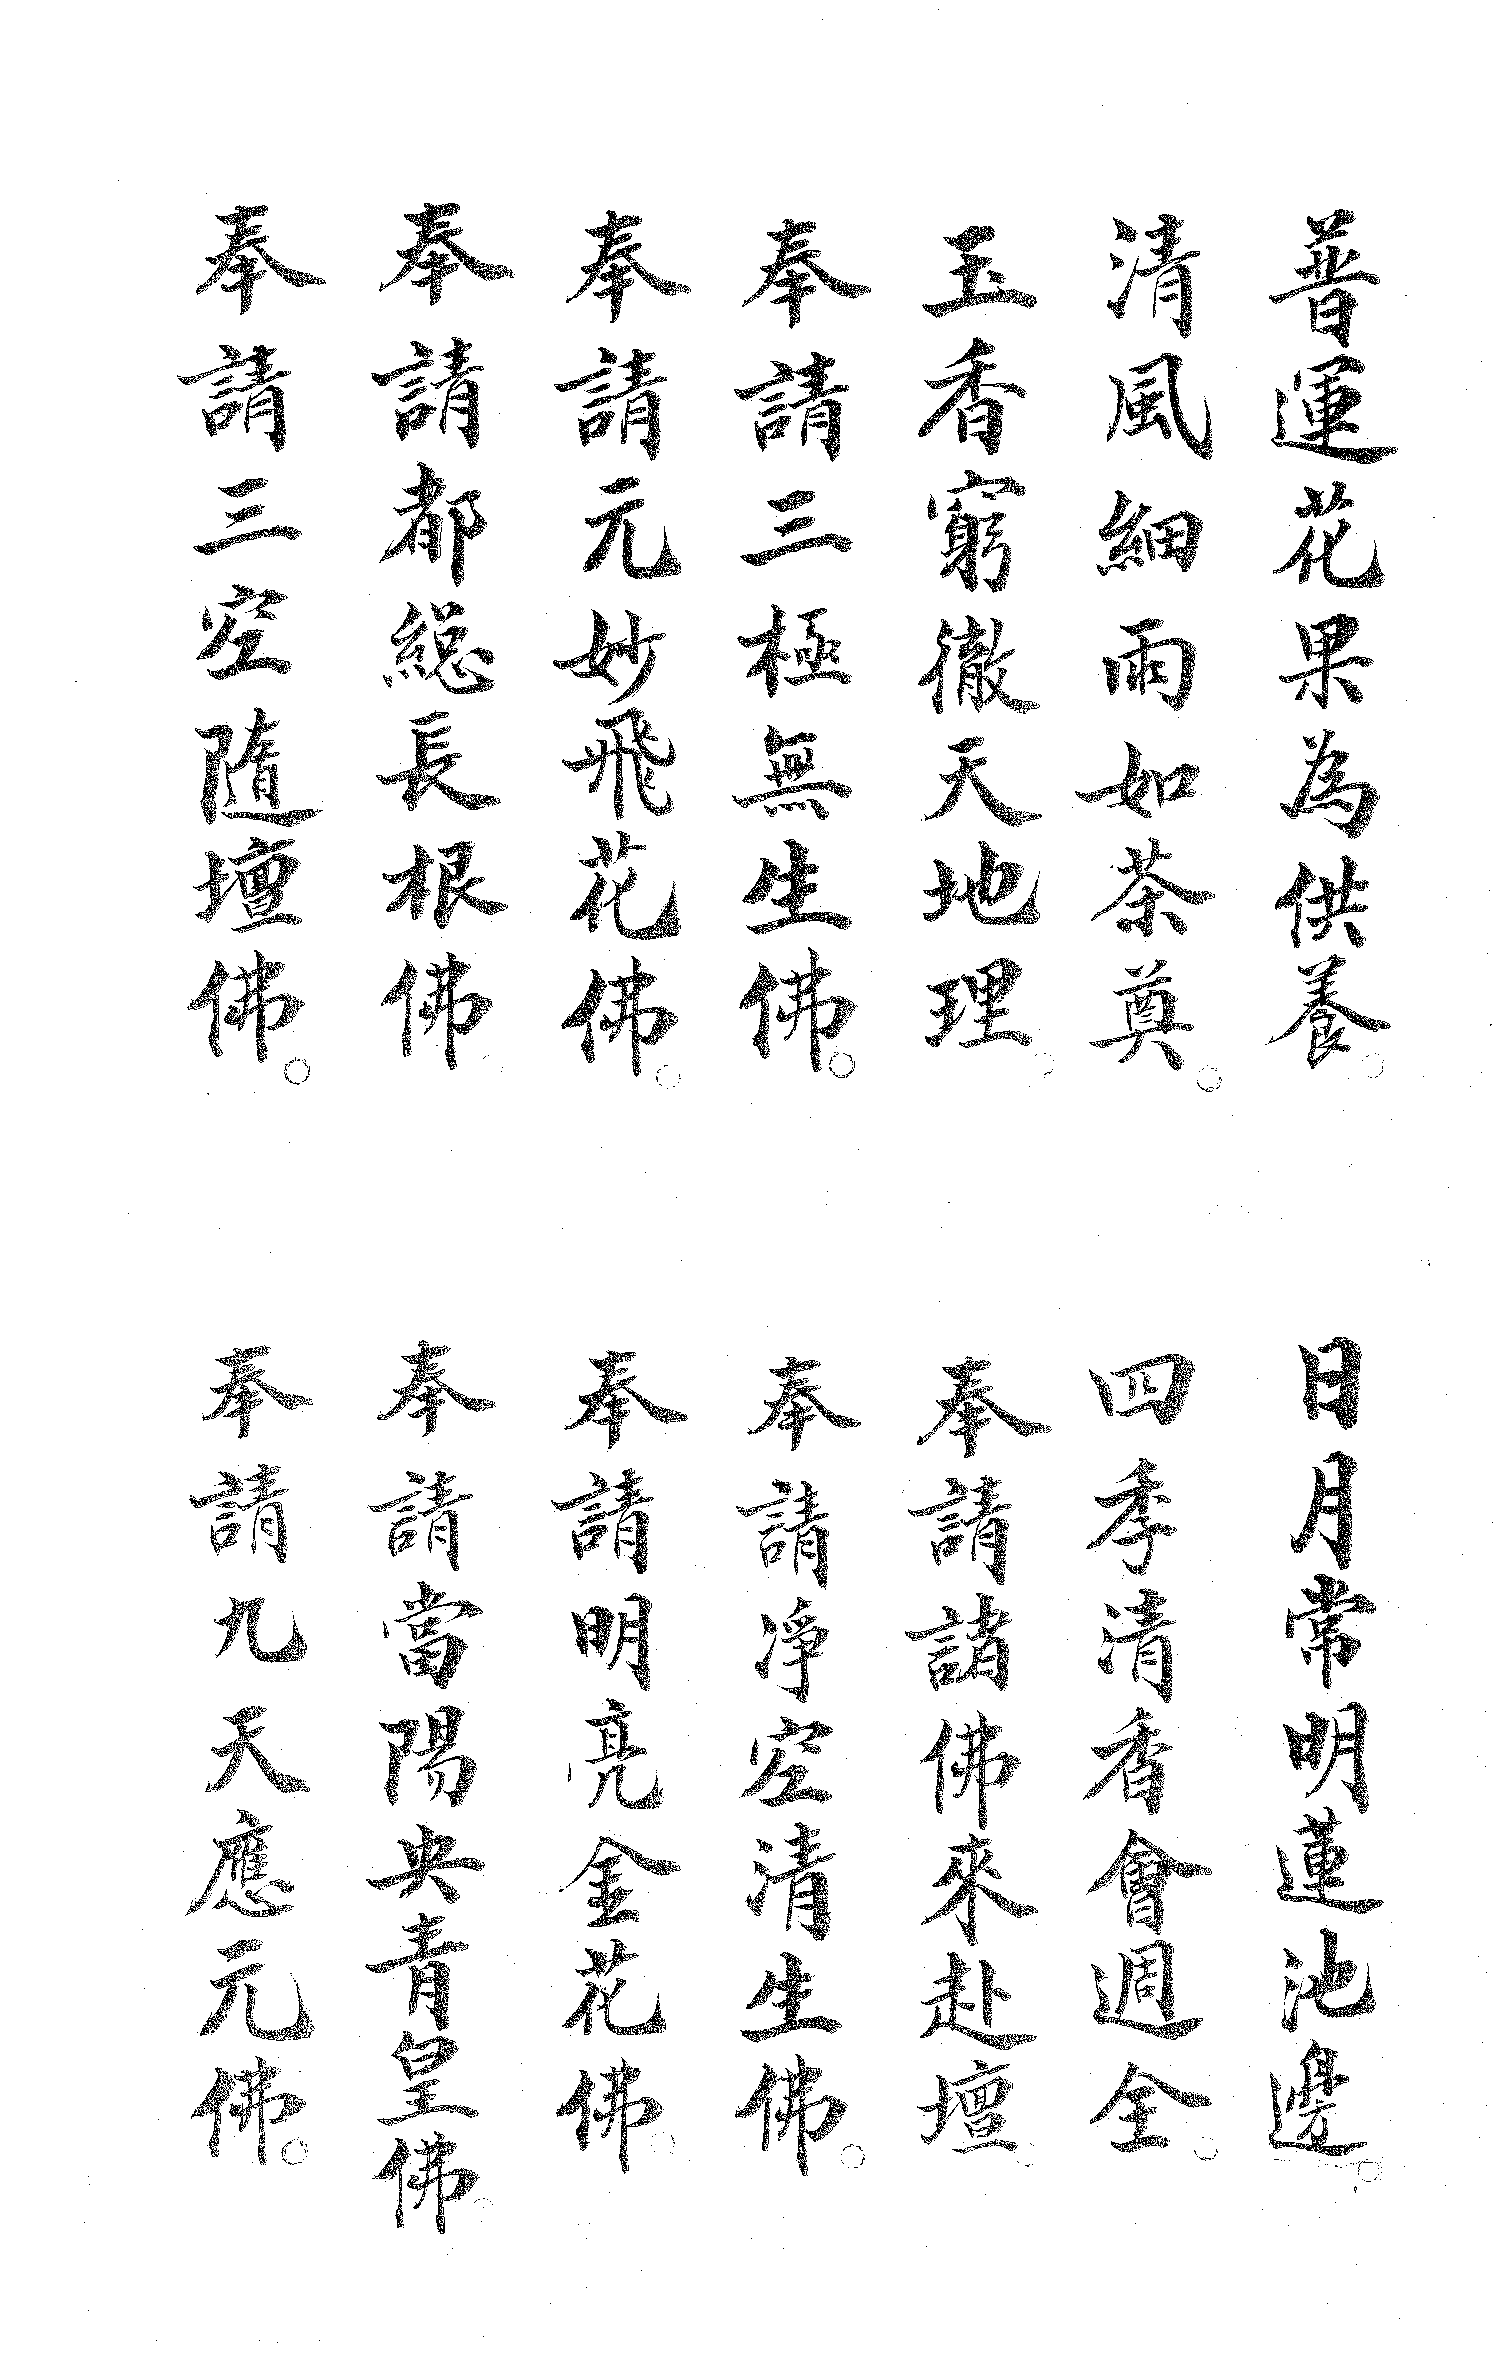 普運花果為供養。
日月常明蓮池邊。
清風細雨如茶奠。
四季清香會週全。
玉香窮徹天地理。
奉請諸佛來赴壇。
奉請三極無生佛。
奉請淨空清生佛。
奉請元妙飛花佛。
奉請明亮金花佛。
奉請都総長根佛
奉請當陽央青皇佛。
奉請三空隨壇佛。
奉請九天應元佛。